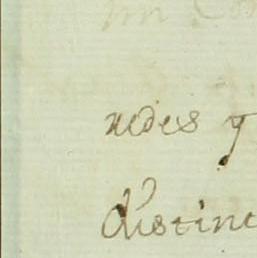 nedes y
distinc